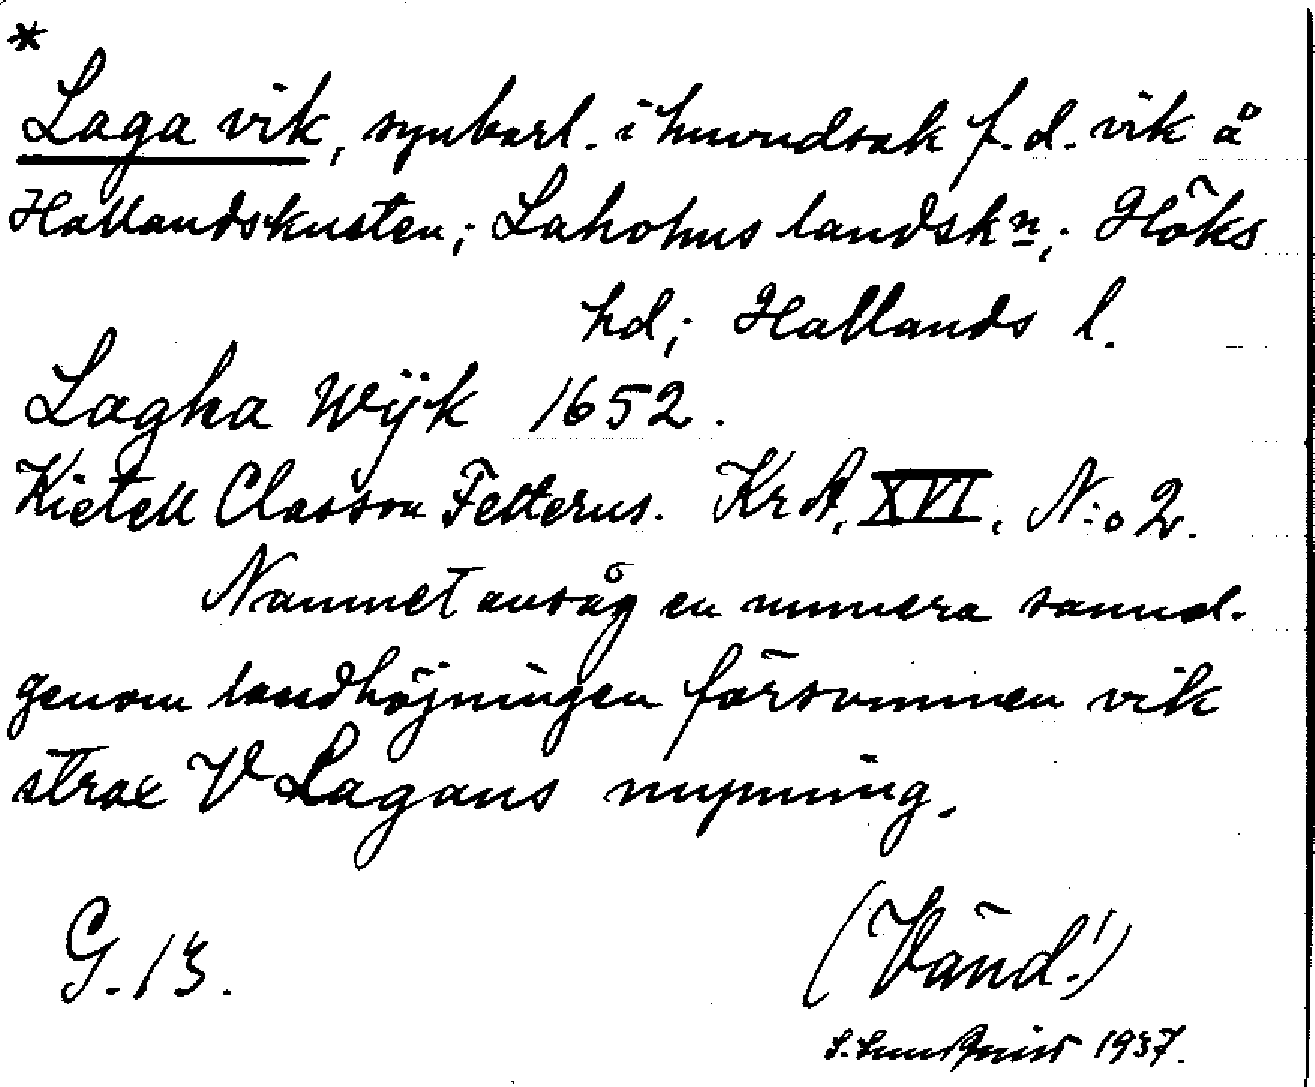 *
Laga vik, synbarl. i huvudsak f. d. vik å
Hallandskusten; Laholms landskn; Höks
hd; Hallands l.
Lagha Wÿk 1652.
Kietell Classon Felterus. KrA, XVI, N:o 2.
Namnet avsåg en numera sannol.
genom landhöjningen försvunnen vik
strax V Lagans mynning.
G. 13.
(Vänd!)
S. Lundqvist 1937.